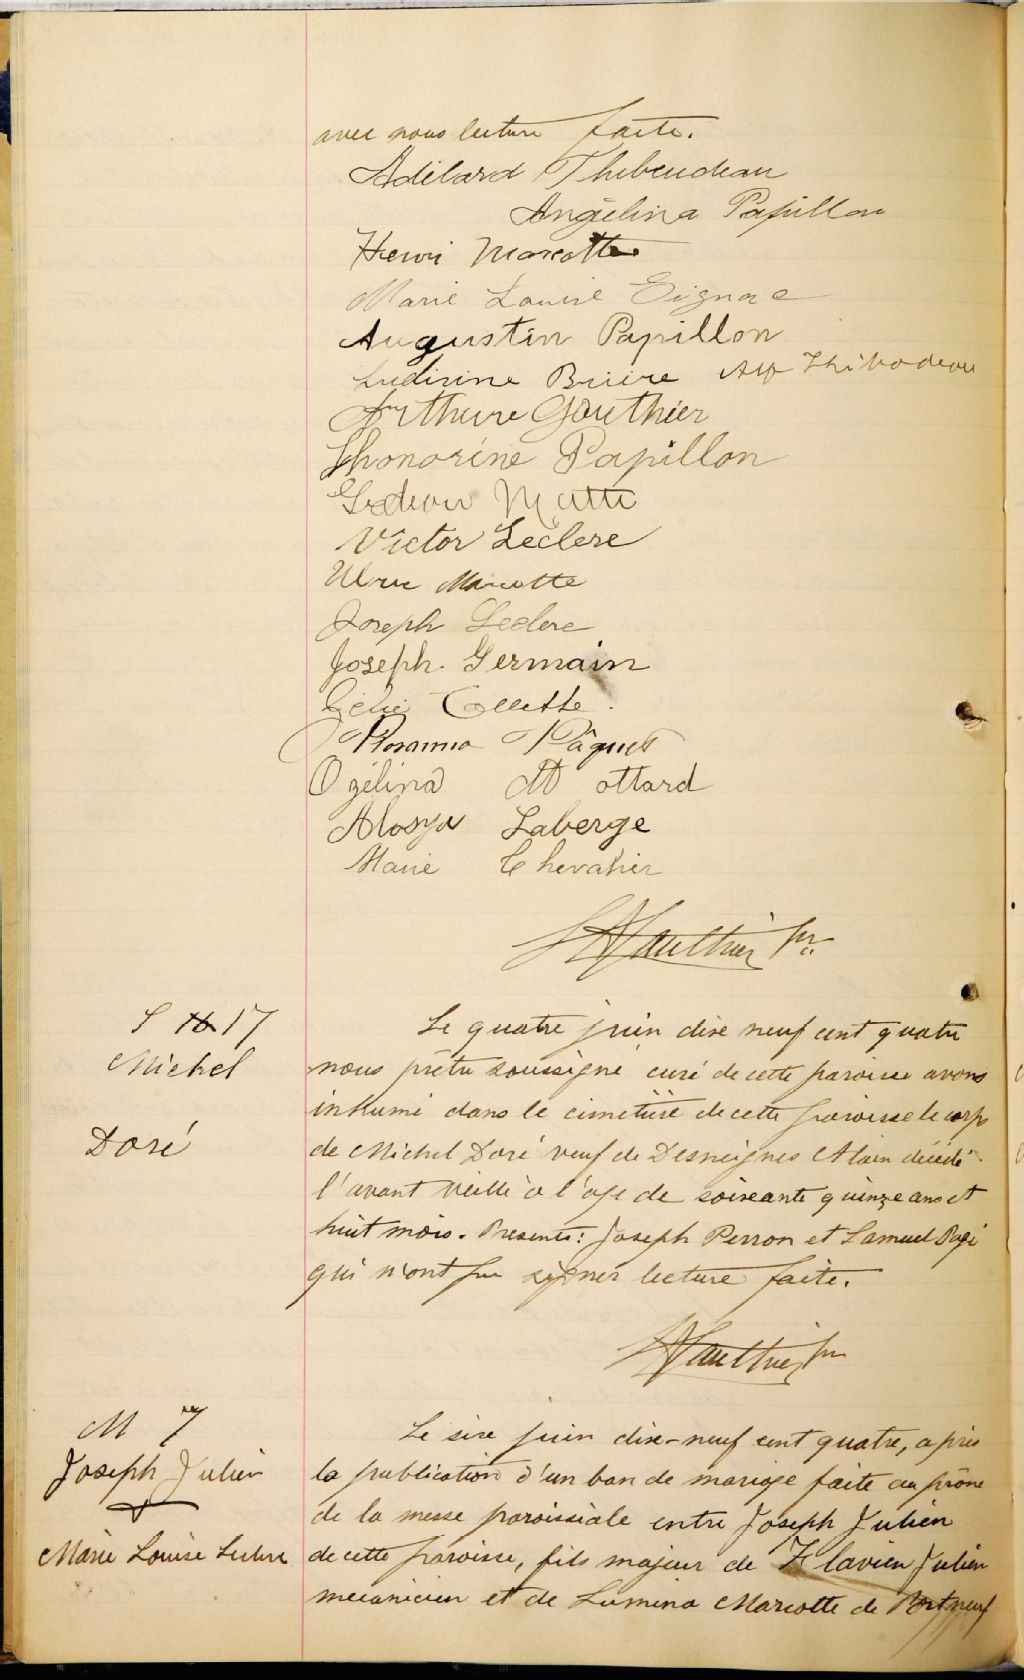 avec nous lecture faite.
Adélard Thibeudeau
Angélina Papillon
Henri Marcotte
Marie Louise Gignac
Augustin Papillon
Ludivine Brière Alp Thibodeau
Arthure Gauthier
Thonorine Papillon
Gédéon Matte
Victor Leclerc
Ulric Marcotte
Joseph Leclerc
Joseph. Germain
Célie Collette.
Rosanna Pâquet
Ozélina Mottard
Laberge
Marie Chevalier
Gauthier Ptr.
S 16 17
Michel
Doré
Le quatre juin dixe neuf cent quatre
nous prêtre soussigné curé de cette paroisse avons
inhumé dans le cimetière de cette paroisse le corps
de Michel Doré veuf de Desneiges Alain décédé
l'avant veille à l'age de soixante quinze ans et
huit mois. Présents: Joseph Perron et Samuel Pagé
qui n'ont pu signer lecture faite.
Gauthier Ptr
M 7
Joseph Julien
Marie Louise Leclerc
Le sixe juin dixe-neuf cent quatre, après
la publication d'un ban de mariage faite au prône
de la messe paroissiale entre Joseph Julien
de cette paroisse, fils majeur de Flavien Julien
mecanicien et de Lumina Marcotte de Portneuf